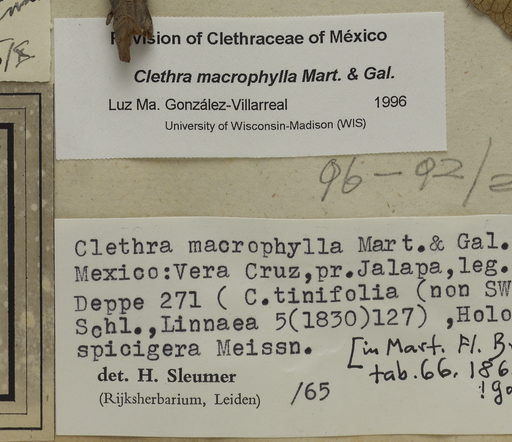 Revision of Clethraceae of México
Clethra macrophylla Mart. & Gal.
Luz Ma. González-Villarreal 1996
University of Wisconsin-Madison (WIS)
96-92/
Clethra macrophylla Mart.& Gal.
Mexico:Vera Cruz,pr.Jalapa,leg.
Deppe 271 ( C.tinifolia (non SW
Schl.,Linnaea 5(1830)127) ,Holo
spicigera Meissn. [in Mart. Fl. B
det. H. Sleumer tab.66. 186
(Rijksherbarium, Leiden) /65